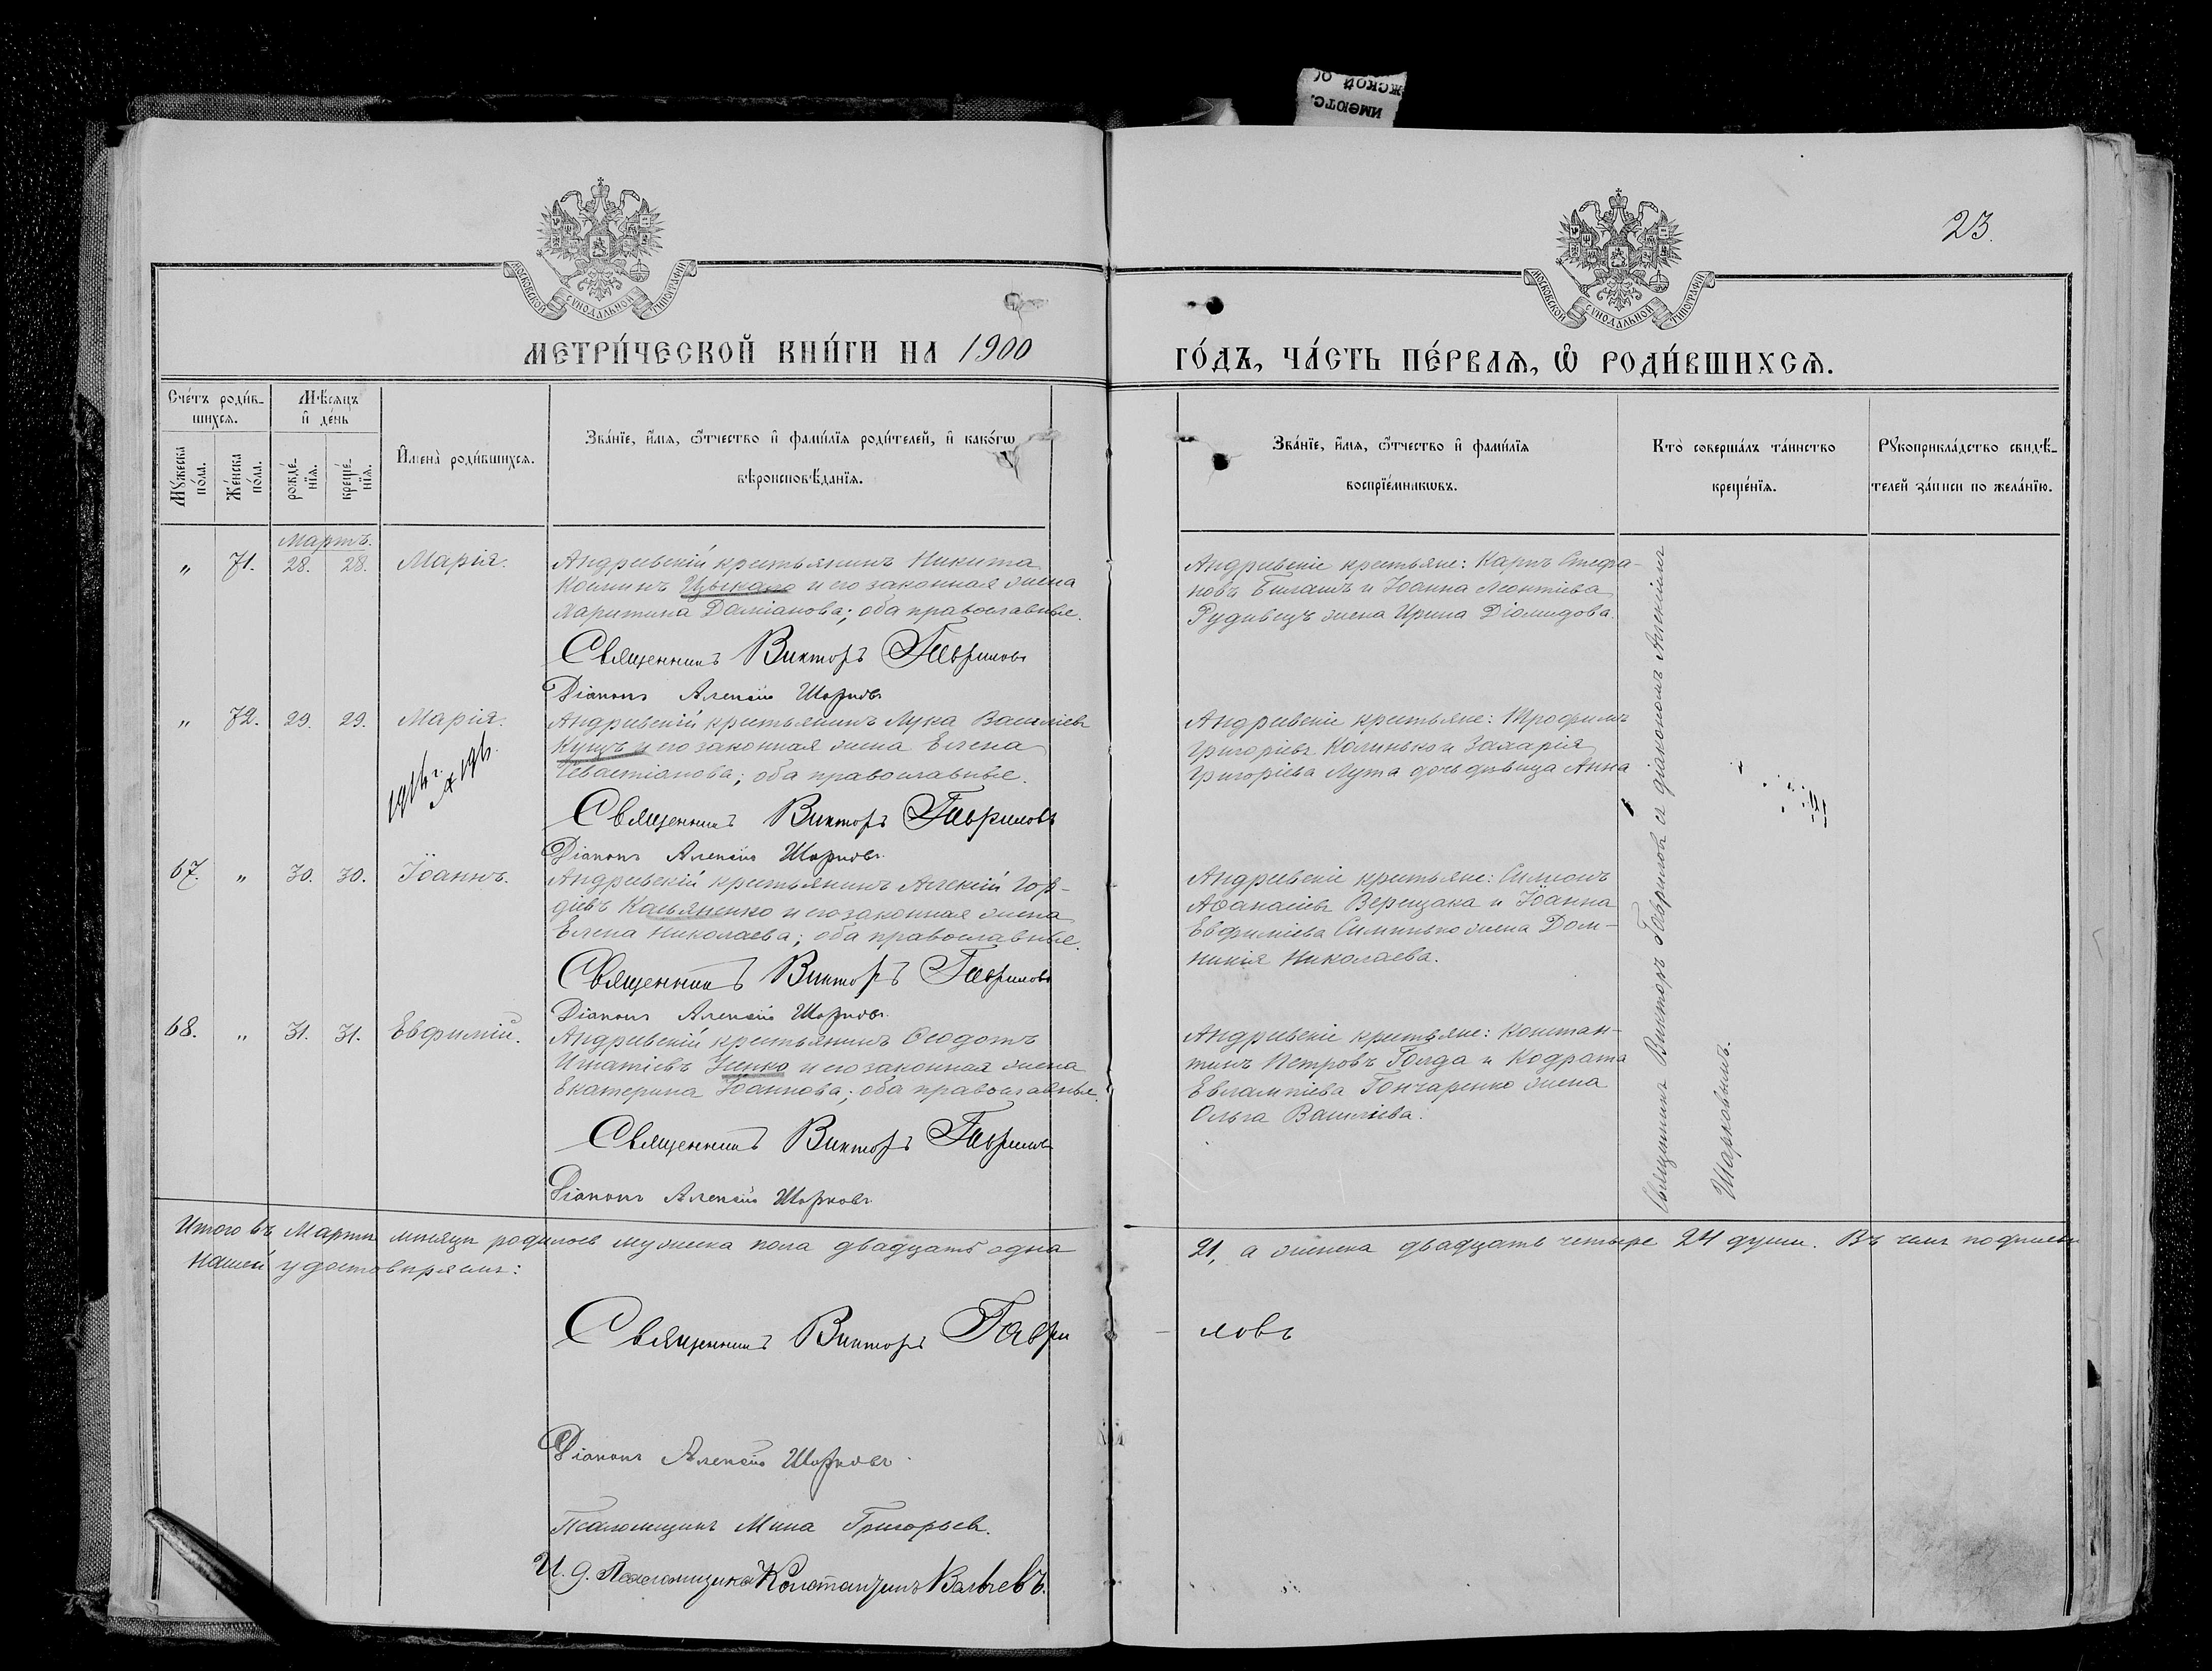 23.
МОСКОВСКОЙ СѴНОДАЛЬНОЙ ТИПОГРАФІИ
МОСКОВСКОЙ СѴНОДАЛЬНОЙ ТИПОГРАФІИ
МЕТРИ́ЧЕСКОЙ КНИ́ГИ НА 1900
ГО́ДЪ, ЧА́СТЬ ПЕ́РВАѦ, Ѡ҆ РОДИ́ВШИХСѦ.
Сче́тъ роди́в-
шихсѧ.
Мꙋжеска по́ла.
Же́нска по́ла.
Мѣ́сѧцъ
и҆ де́нь
рожде́-
нїѧ.
креще́-
нїѧ.
И҆мена̀ роди́вшихсѧ.
Зва́нїе, и҆́мѧ, ѻ҆́тчество и҆ фами́лїѧ роди́телей, и҆ како́гѡ
вѣроисповѣ́данїѧ.
Зва́нїе, и҆́мѧ, ѻ҆́тчество и҆ фами́лїѧ
воспрїе́мникѡвъ.
Кто̀ соверша́лъ та́инство
креще́нїѧ.
Рꙋкоприкла́дство свидѣ́-
телей за́писи по жела́нїю.
Мартъ.
„ 71. 28. 28. Марія.
Андреевскій крестьянинъ Никита
Косминъ Цыкало и его законная жена
Харитина Даміанова; оба православные.
Священникъ Викторъ Гавриловъ
Діаконъ Алексій Шарковъ
Андреевскіе крестьяне: Карпъ Стефа-
новъ Билашъ и Іоанна Леонтіева
Рудивецъ жена Ирина Діомидова.
„ 72. 29. 29. Марія.
1914 г.
Андреевскій крестьянинъ Лука Васильевъ
Куцъ и его законная жена Елена
Севастіанова; оба православные.
Священникъ Викторъ Гавриловъ
Діаконъ Алексій Шарковъ.
Андреевскіе крестьяне: Трофимъ
Григорьевъ Калинько и Захарія
Григоріева Лута дочь дѣвица Анна
67. „ 30. 30. Іоаннъ.
Андреевскій крестьянинъ Алексій Гор-
діевъ Касьяненко и его законная жена
Елена Николаева; оба православные.
Священникъ Викторъ Гавриловъ
Діаконъ Алексій Шарковъ.
Андреевскіе крестьяне: Симеонъ
Аѳанасіевъ Верещака и Іоанна
Евфиміева Симинько жена Дом-
никія Николаева.
68. „ 31. 31. Евфимій.
Андреевскій крестьянинъ Ѳеодотъ
Игнатіевъ Усенко и его законная жена
Екатерина Іоаннова; оба православные.
Священникъ Викторъ Гавриловъ
Діаконъ Алексій Шарковъ
Андреевскіе крестьяне: Констан-
тинъ Петровъ Голда и Кодрата
Евлампіева Гончаренко жена
Ольга Васильева.
Священникъ Викторъ Гавриловъ съ діакономъ Алексіемъ
Шарковымъ.
Итого въ Мартѣ мѣсяцѣ родилось мужеска пола двадцать одна
21, а женска двадцать четыре 24 души. Въ чемъ подписью
нашей удостовѣряемъ:
Священникъ Викторъ Гаври
ловъ
Діаконъ Алексій Шарковъ.
Псаломщикъ Мина Григорьевъ.
И. д. Псаломщика Константинъ